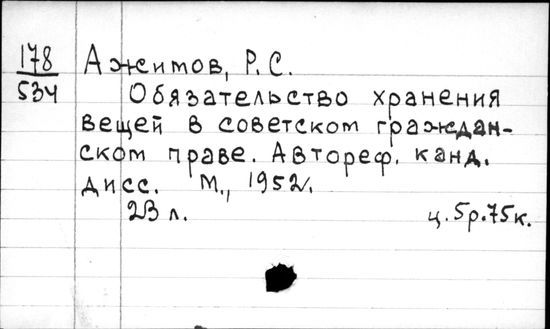 178
534
Ажимов, Р.С.
Обязательство хранения
вещей в советском граждан-
ском праве. Автореф. канд.
дисс. М., 1952.
23 л. ц. 5р.75к.